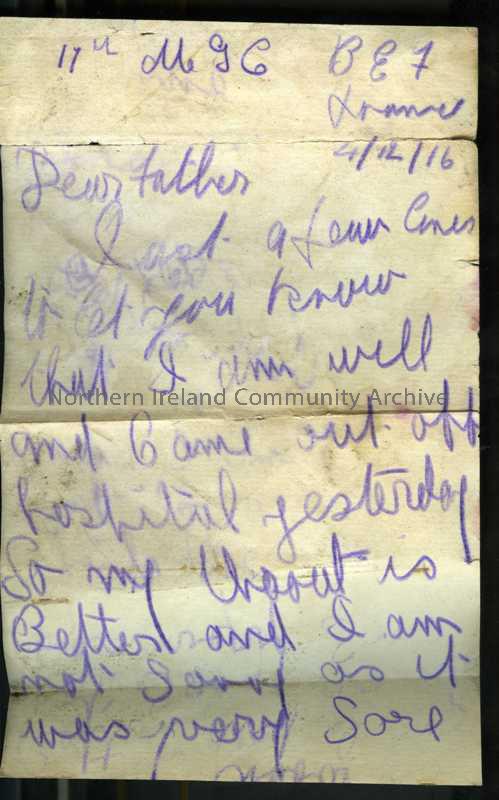 11th M G C B E F
France
4/12/16
Dear Father
Just a few lines
to let you know
that I am well
and Came out off
Northern Ireland Community Archive
hospital yesterday
So my thoout is
Better and I am
not Sorry as it
was very Sore